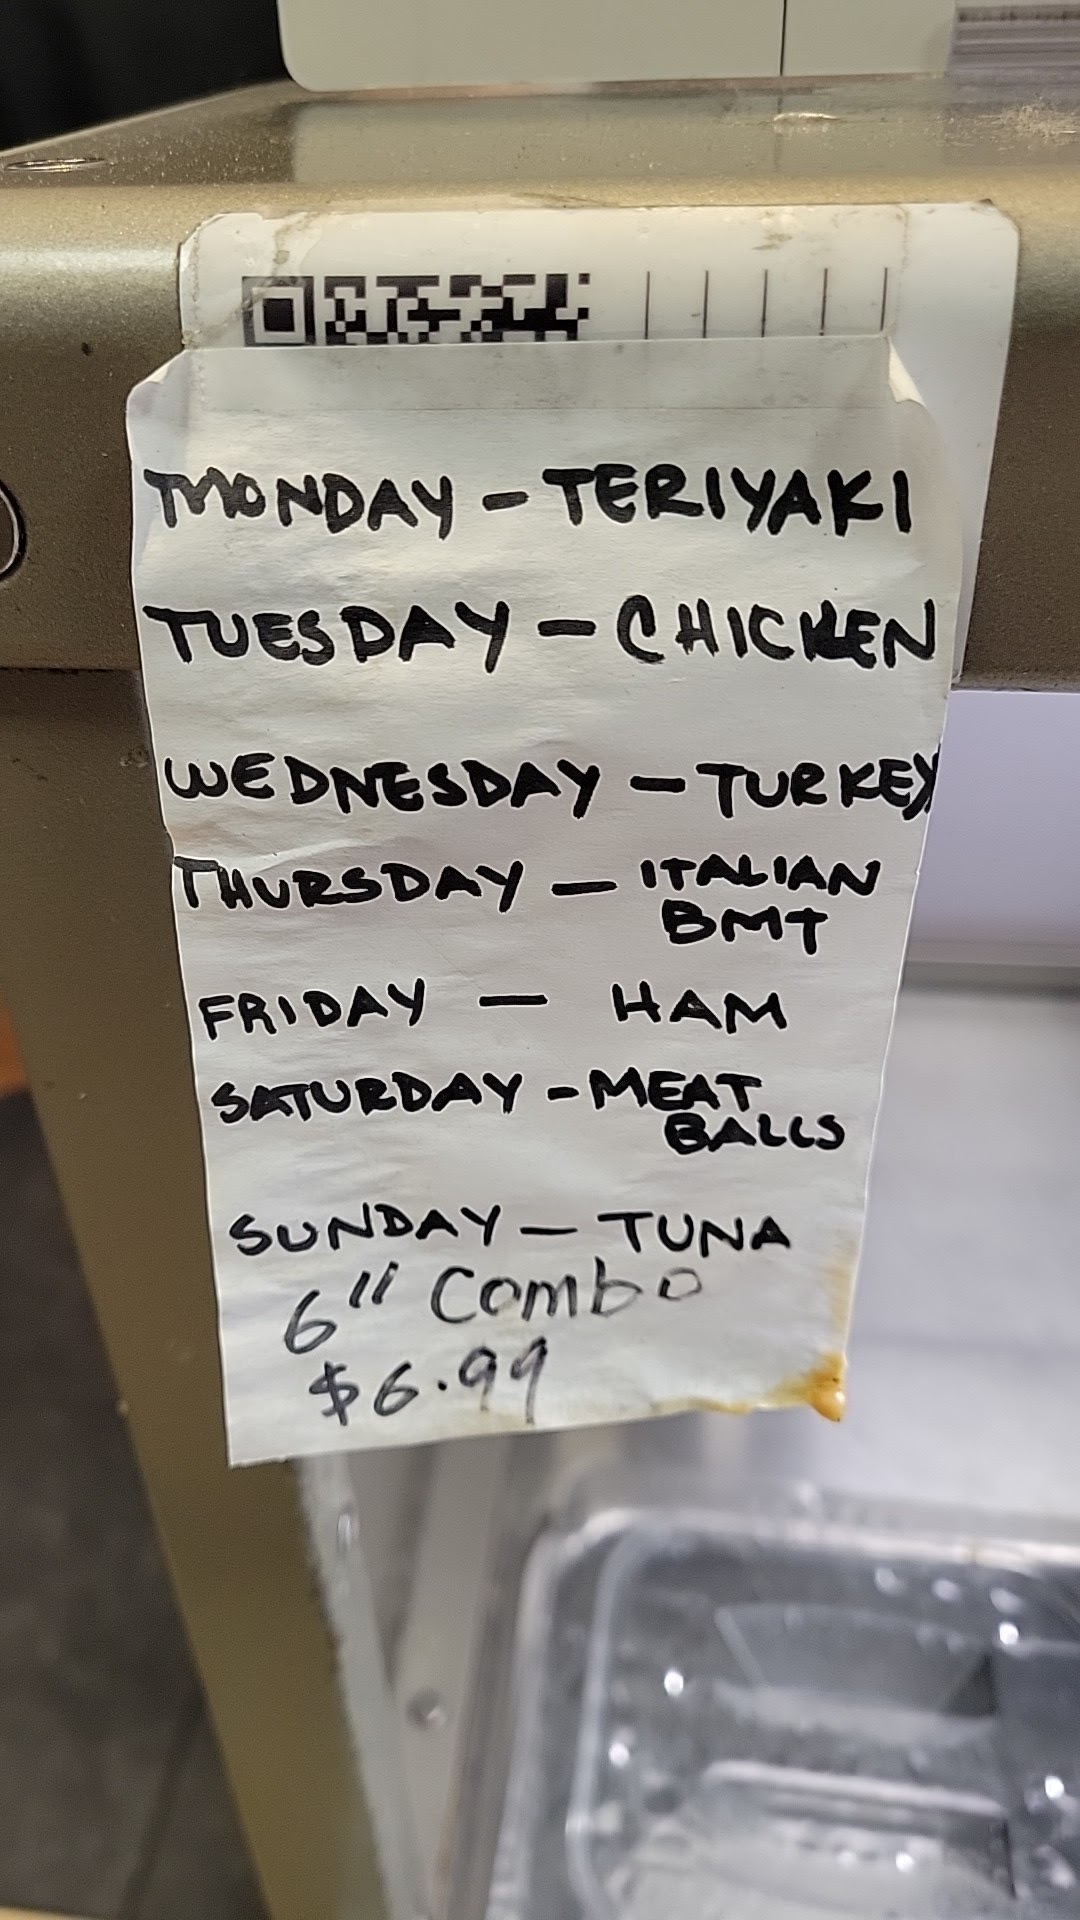 MONDAY - TERIYAKI
TUESDAY - CHICKEN
WEDNESDAY - TURKEY
THURSDAY - ITALIAN
BMT
FRIDAY - HAM
SATURDAY - MEAT
BALLS
SUNDAY - TUNA
6" Combo
$6.99